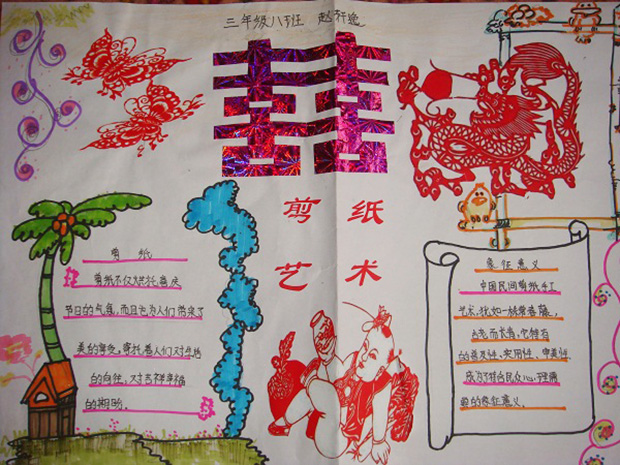 三年级八班 赵轩逸
囍
剪纸
艺术
剪纸
剪纸不仅烘托喜庆
节日的气氛，而且也为人们带来了
美的享受，寄托着人们对生活
的向往，对吉祥幸福
的期盼。
象征意义
中国民间剪纸手工
艺术，犹如一株常春藤，
古老而长青，它特有
的普及性、实用性、审美性
成为了符合民众心理需
要的象征意义。